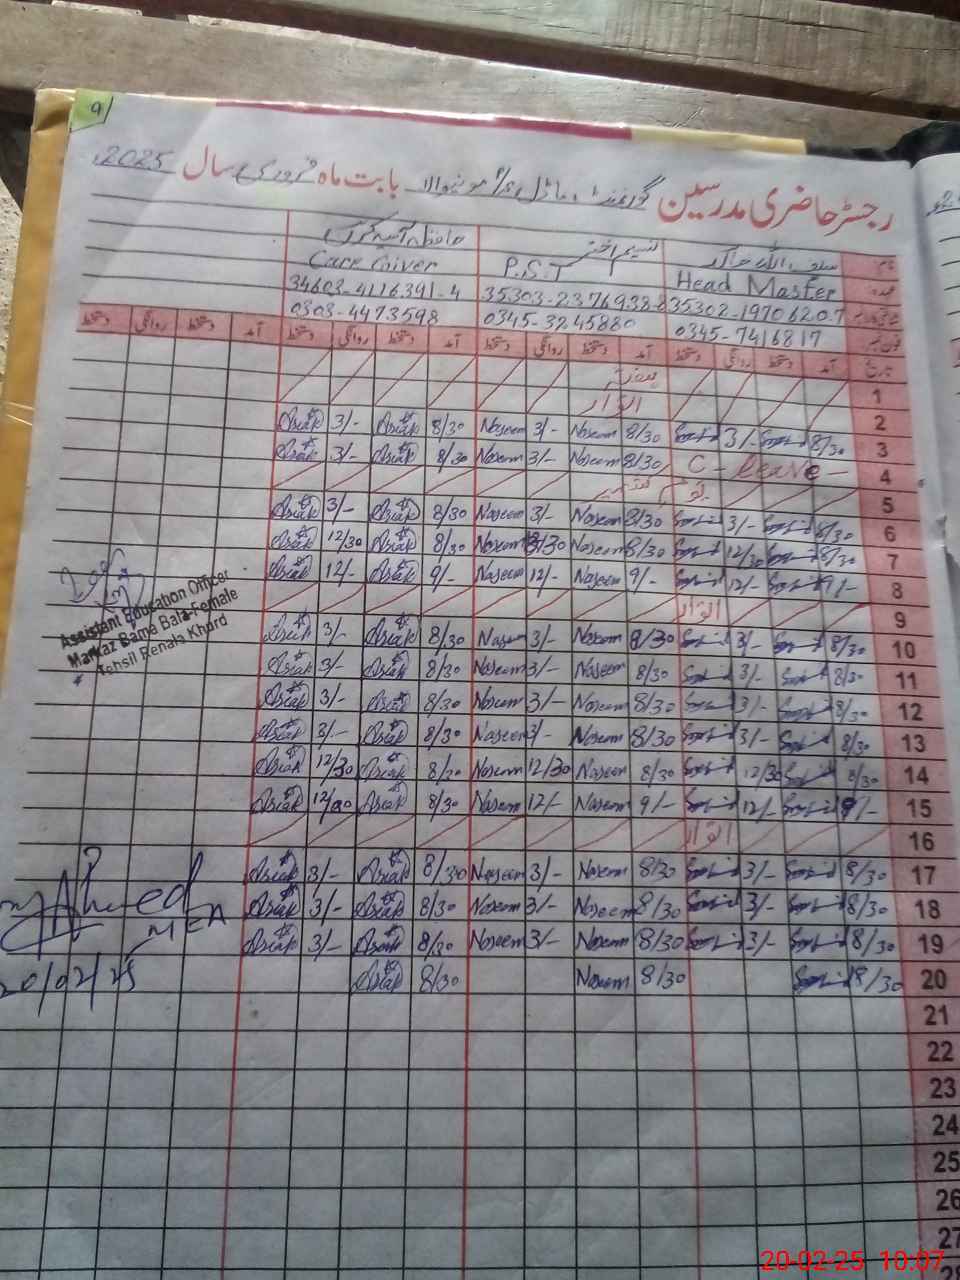 9
رجسٹر حاضری مدرسین گورنمنٹ ماڈل بابت ماہ فروری سال 2025ء
نام نسیم اختر حافظہ آسیہ
عہدہ Head Master P.S.T Care Giver
35302-1970620-7 35303-2376938-8 34603-4116391-4
فون نمبر 0345-7416817 0345-3245880 0303-4473598
تاریخ آمد دستخط روانگی دستخط آمد دستخط روانگی دستخط آمد دستخط روانگی دستخط آمد دستخط روانگی دستخط
1
اتوار 2
Asiak 3/- Asiak 8/30 Naseem 3/- Naseem 8/30 3/- 8/30 3
Asiak 3/- Asiak 8/30 Naseem 3/- Naseem 8/30 C - Leave - 4
یوم کشمیر 5
Asiak 3/- Asiak 8/30 Naseem 3/- Naseem 8/30 3/- 8/30 6
Asiak 12/30 Asiak 8/30 Naseem Naseem 8/30 12/30 8/30 7
Asiak 12/- Asiak 9/- Naseem 12/- Naseem 9/- 12/- 9/- 8
اتوار 9
Asiak 3/- Asiak 8/30 Naseem 3/- Naseem 8/30 3/- 8/30 10
Asiak 3/- Asiak 8/30 Naseem 3/- Naseem 8/30 3/- 8/30 11
Asiak 3/- Asiak 8/30 Naseem 3/- Naseem 8/30 3/- 8/30 12
Asiak 3/- Asiak 8/30 Naseem 3/- Naseem 8/30 3/- 8/30 13
Asiak 12/30 Asiak 8/30 Naseem 12/30 Naseem 8/30 12/30 8/30 14
Asiak Asiak 8/30 Naseem 12/- Naseem 9/- 12/- 9/- 15
اتوار 16
Asiak 3/- Asiak 8/30 Naseem 3/- Naseem 8/30 3/- 8/30 17
Asiak 3/- Asiak 8/30 Naseem 3/- Naseem 8/30 3/- 8/30 18
Asiak 3/- Asiak 8/30 Naseem 3/- Naseem 8/30 3/- 8/30 19
Asiak 8/30 Naseem 8/30 8/30 20
21
22
23
24
25
26
27
28
Assistant Education Officer
Markaz Bama Bala-Female
Tehsil Renala Khurd
Ahmed
MEA
20/02/25
20-02-25 10:07